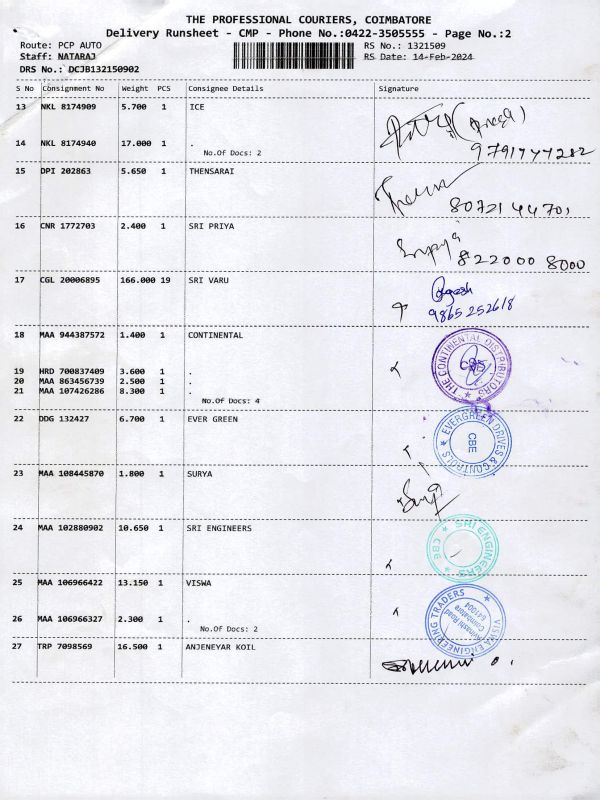 THE PROFESSIONAL COURIERS, COIMBATORE
Delivery Runsheet - CMP - Phone No.:0422-3505555 - Page No.:2
Route: PCP AUTO RS No.: 1321509
Staff: NATARAJ RS Date: 14-Feb-2024
DRS No.: DCJB132150902
S No Consignment No Weight PCS Consignee Details Signature
13 NKL 8174909 5.700 1 ICE
14 NKL 8174940 17.000 1 .
No.Of Docs: 2
9791777282
15 DPI 202863 5.650 1 THENSARAI
8072144701
16 CNR 1772703 2.400 1 SRI PRIYA
822000 8000
17 CGL 20006895 166.000 19 SRI VARU
9865252618
18 MAA 944387572 1.400 1 CONTINENTAL
THE CONTINENTAL DISTRIBUTORS
CBE
19 HRD 700837409 3.600 1 .
20 MAA 863456739 2.500 1 .
21 MAA 107426286 8.300 1 .
No.Of Docs: 4
22 DDG 132427 6.700 1 EVER GREEN
EVERGREEN DRIVES & CONTROLS
CBE
23 MAA 108445870 1.800 1 SURYA
24 MAA 102880902 10.650 1 SRI ENGINEERS
SRI ENGINEERS
CBE
25 MAA 106966422 13.150 1 VISWA
26 MAA 106966327 2.300 1 .
No.Of Docs: 2
VISWA ENGINEERING TRADERS
Avinashi Road
Coimbatore
641004
27 TRP 7098569 16.500 1 ANJENEYAR KOIL